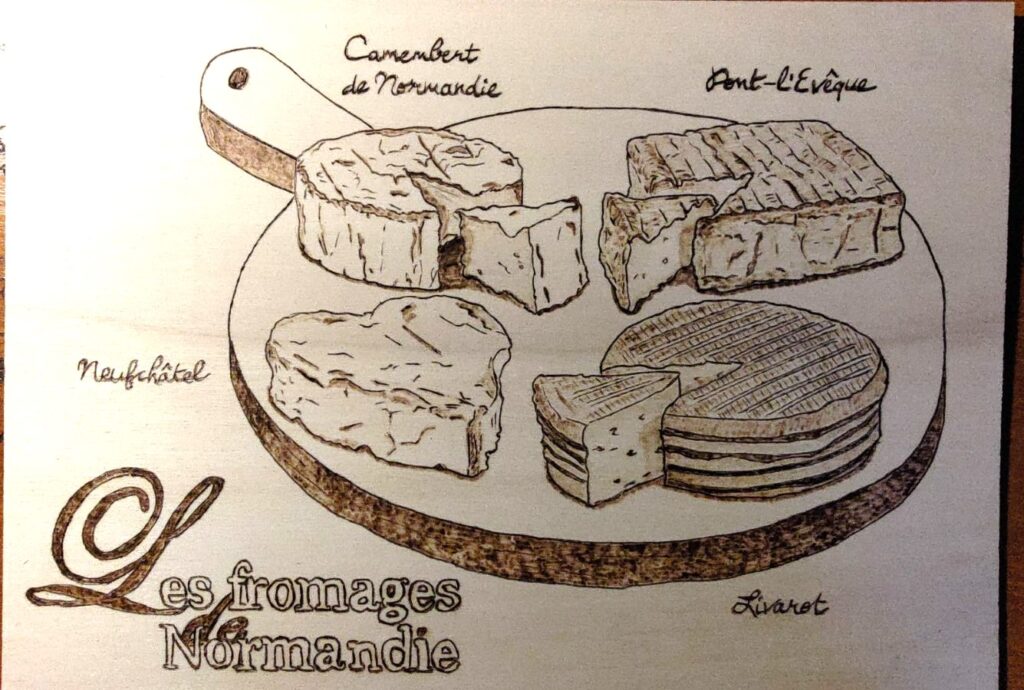 Camembert
de Normandie
Pont-l'Evêque
Neufchâtel
Livarot
Les fromages
de
Normandie